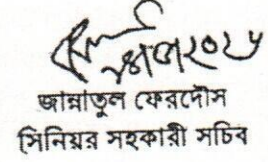 জান্নাতুল ফেরদৌস
সিনিয়র সহকারী সচিব